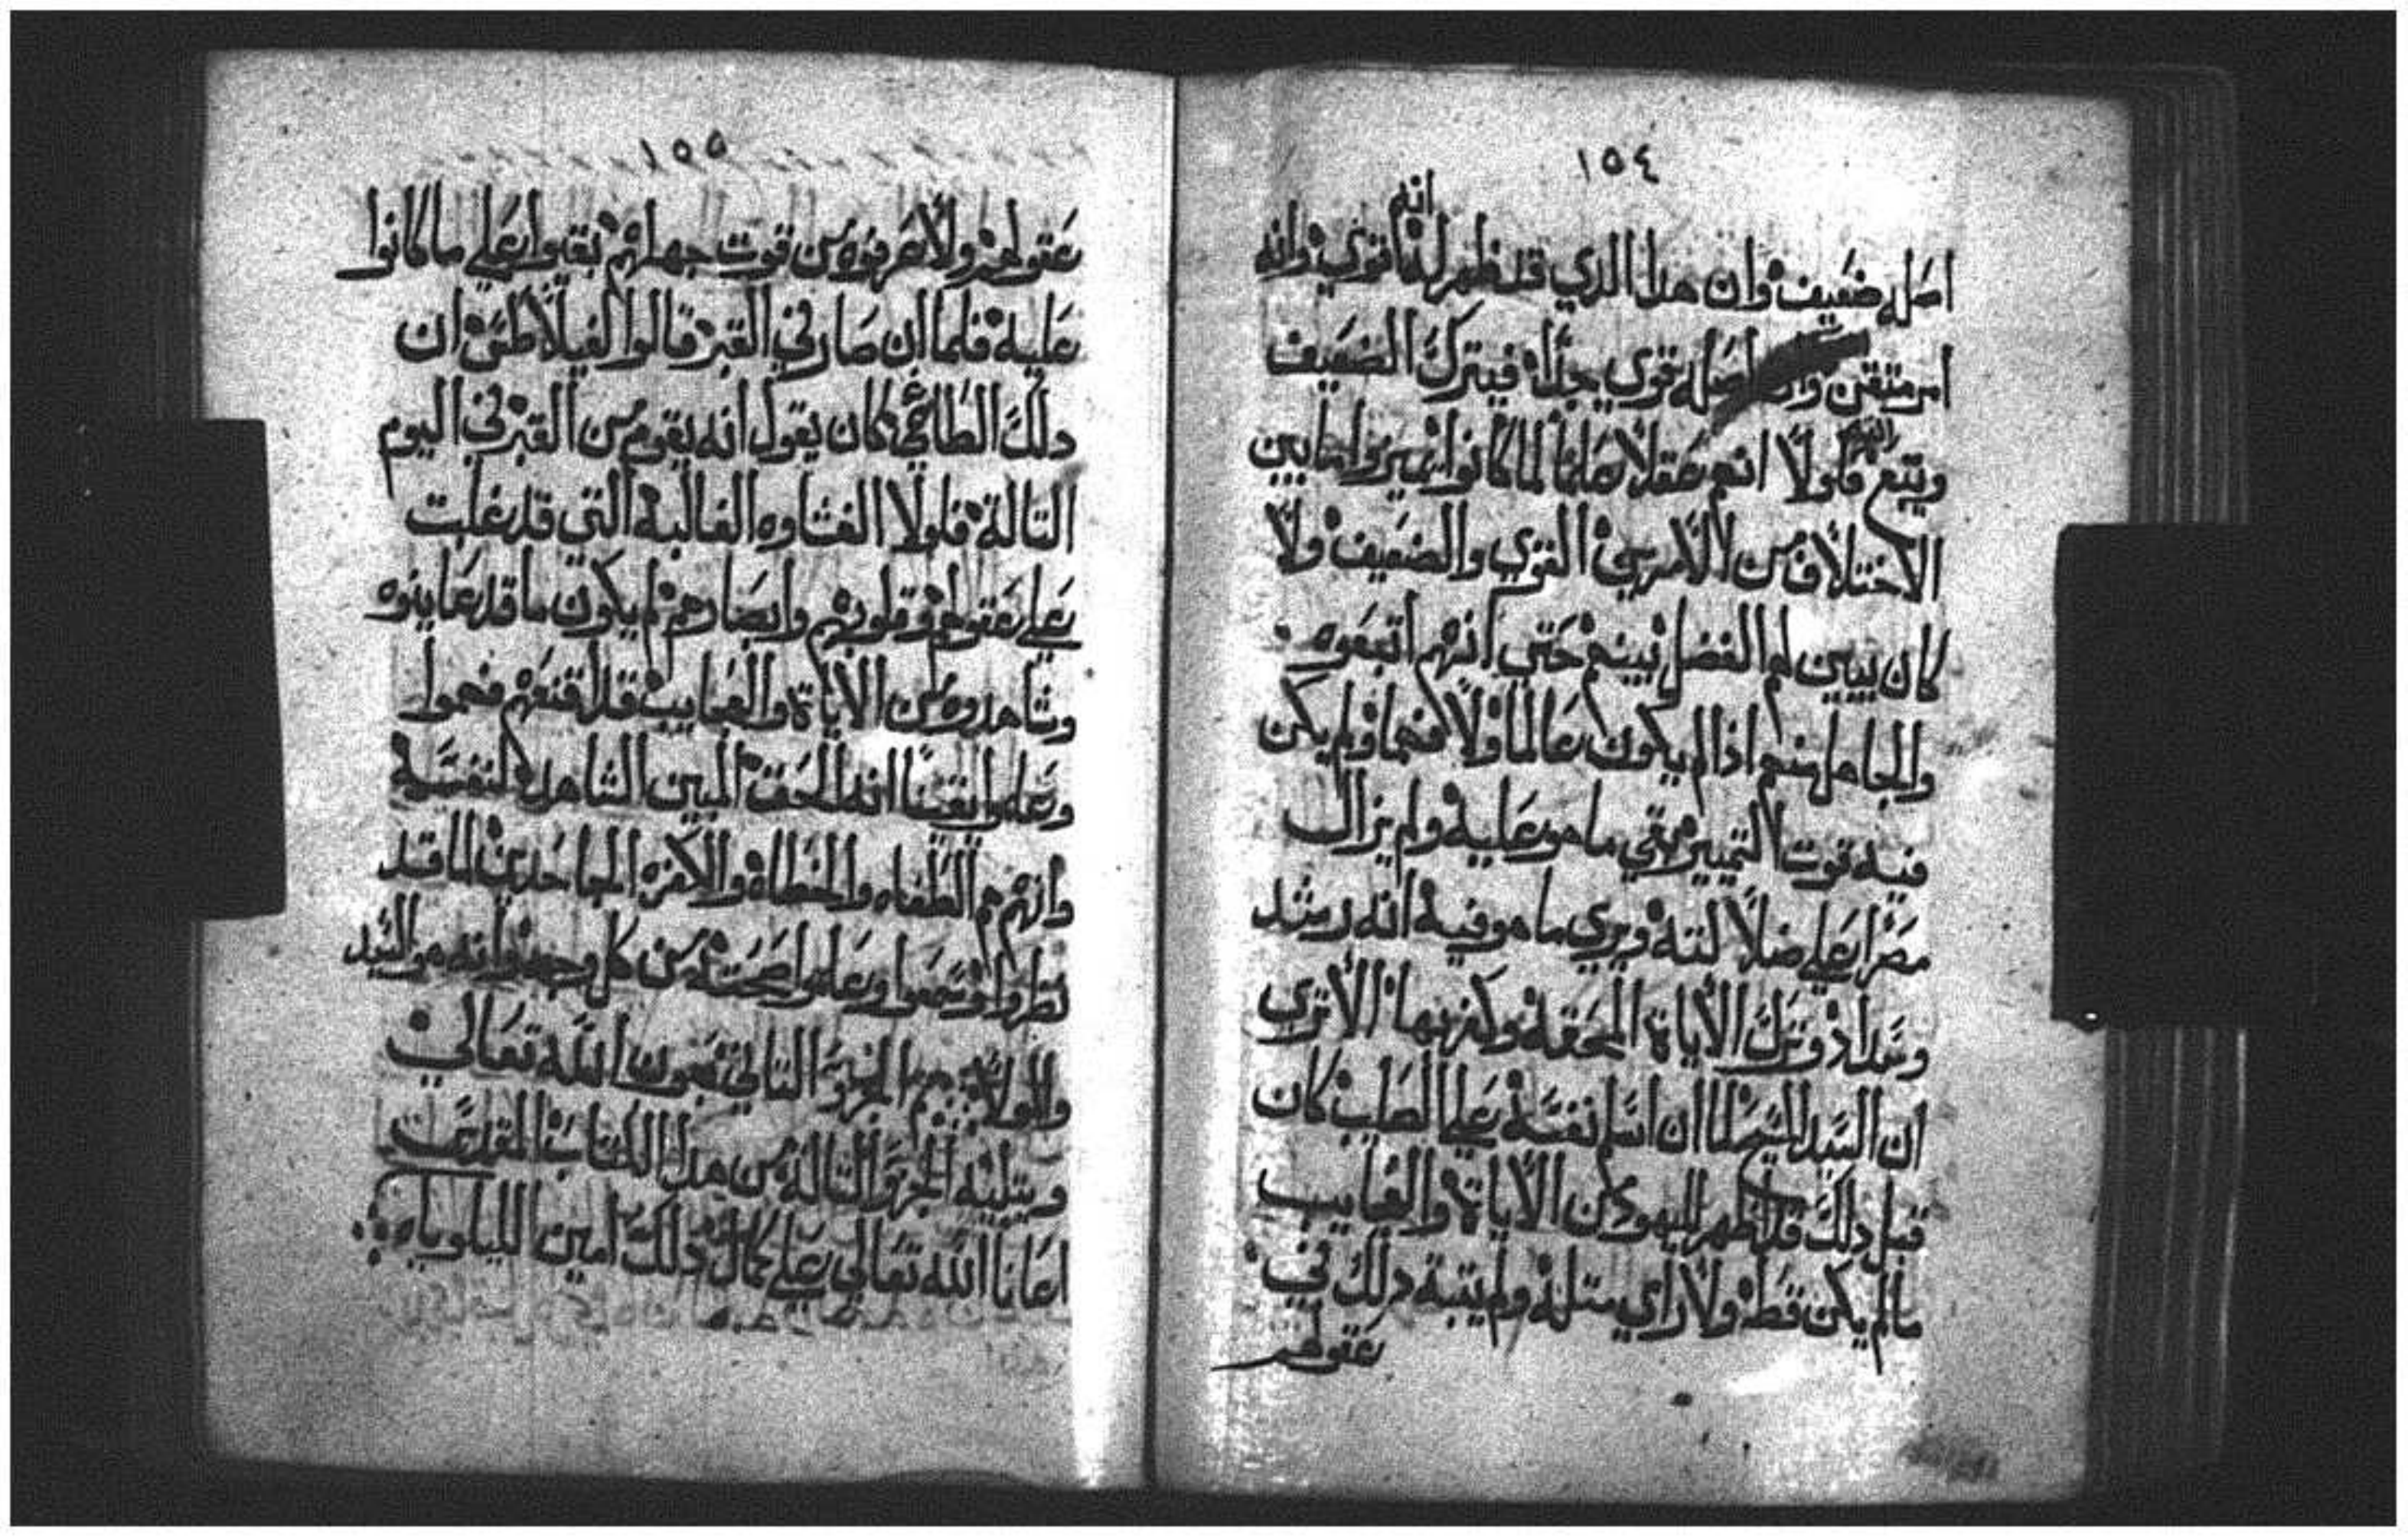 ١٥٤
انه
اصله ضعيف وان هدا الدي قد ظهر لها قوي وانه
امر متقن وان اصله قوي جدا فيترك الضعيف
ويتبع القوي فلولا انهم عقلا علما لما كانوا يميزوا ما بين
الاختلاف من الامرين القوي والضعيف ولا
كان يبين لهم الفضل بينهم حتي انهم اتبعوه
والجاهل منهم اذا لم يكون عالما ولا فهما ولم يكن
فيه قوت التمييز بقي ما هو عليه ولم يزال
مصرا علي ضلالته ويري ما هو فيه انه رشد
وسداد وترك الاياة المحقه وكفر بها الا تري
ان السيد المسيح لما ان اسلم نفسه علي الصليب كان
قبل دلك قد اظهر لليهود من الاياة والعجايب
ما لم يكن قط ولا راي متله ولم يتبة دلك في
عقولهم
١٥٥
عقولهم ولا عرفوه من قوت جهلهم بقوا علي ما كانوا
عليه فلما ان صار في القبر قالوا لفيلاطس ان
دلك الطاغي كان يقول انه يقوم من القبر في اليوم
التالة فلولا الغشاوه الغالبة التي قد غلبت
علي عقولهم وقلوبهم وابصارهم لم يكون ما قد عاينوه
وشاهدوه من الاياة والعجايب قد اقنعهم فهموا
وعلموا يقينا انه الحق المبين الشاهد لنفسه
وانهم هم الطغاه والخطاه والكفره الجاحدين لما قد
نظروا وسمعوا وعلموا صحته من كل وجه وانه هو السيد
والمولا تم الجزو التاني بعون الله تعالي
ويتليه الجزو التالة من هدا الكتاب المقدس
اعاننا الله تعالي علي كمال دلك امين الليلويا